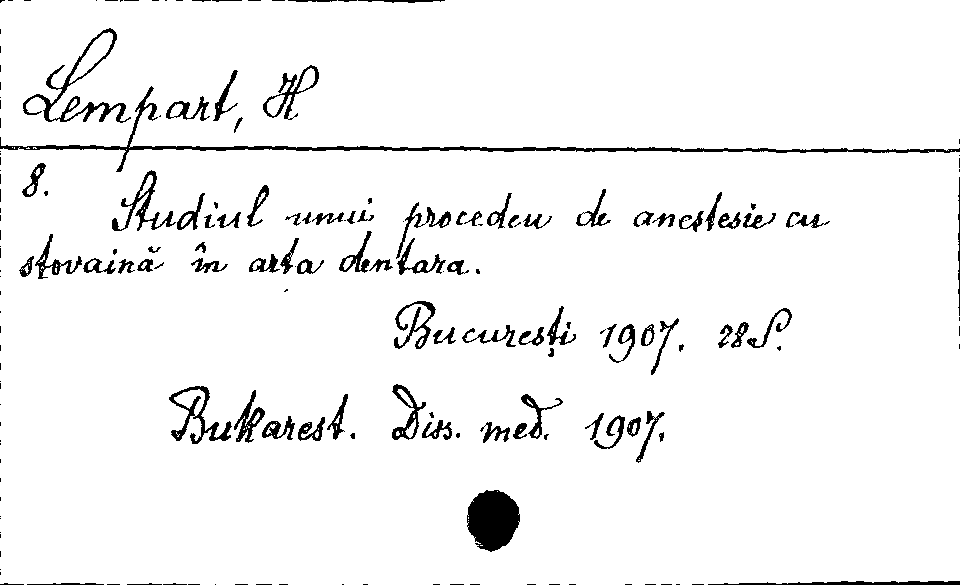 Lempart, H
8.
Studiul unui procedeu de anestesie cu
stovaină în arta dentara.
București 1907. 28 S.
Bukarest. Diss. med. 1907.